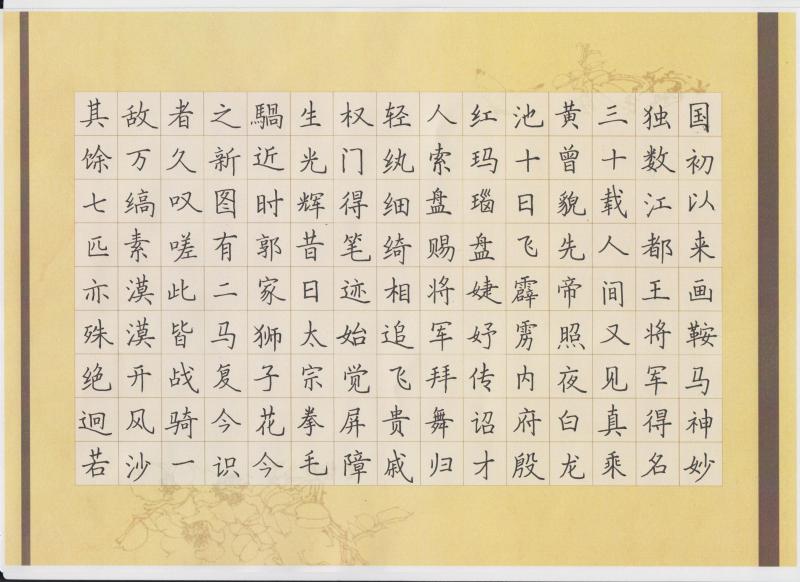 国初以来画鞍马神妙
独数江都王将军得名
三十载人间又见真乘
黄曾貌先帝照夜白龙
池十日飞霹雳内府殷
红玛瑙盘婕妤传诏才
人索盘赐将军拜舞归
轻纨细绮相追飞贵戚
权门得笔迹始觉屏障
生光辉昔日太宗拳毛
騧近时郭家狮子花今
之新图有二马复今识
者久叹嗟此皆战骑一
敌万缟素漠漠开风沙
其馀七匹亦殊绝迥若